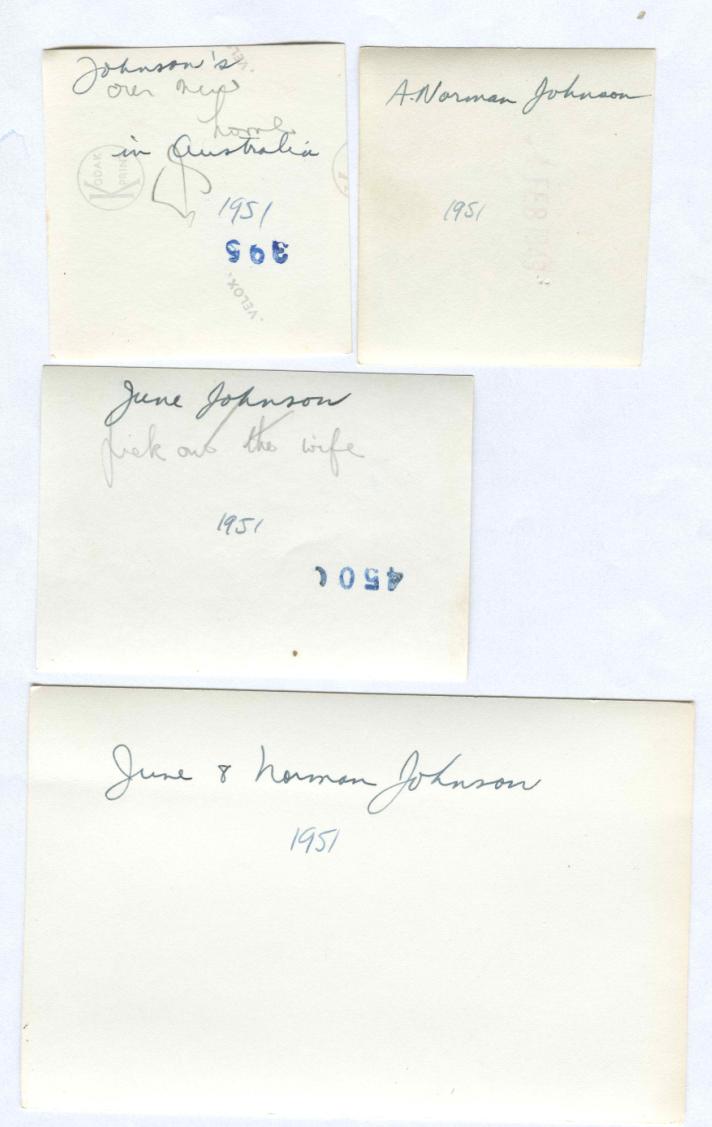 Johnson's
our new
home
in Australia
KODAK
PRINT
1951
395
VELOX
A. Norman Johnson
1951
June Johnson
pick out the wife
1951
450
June & Norman Johnson
1951